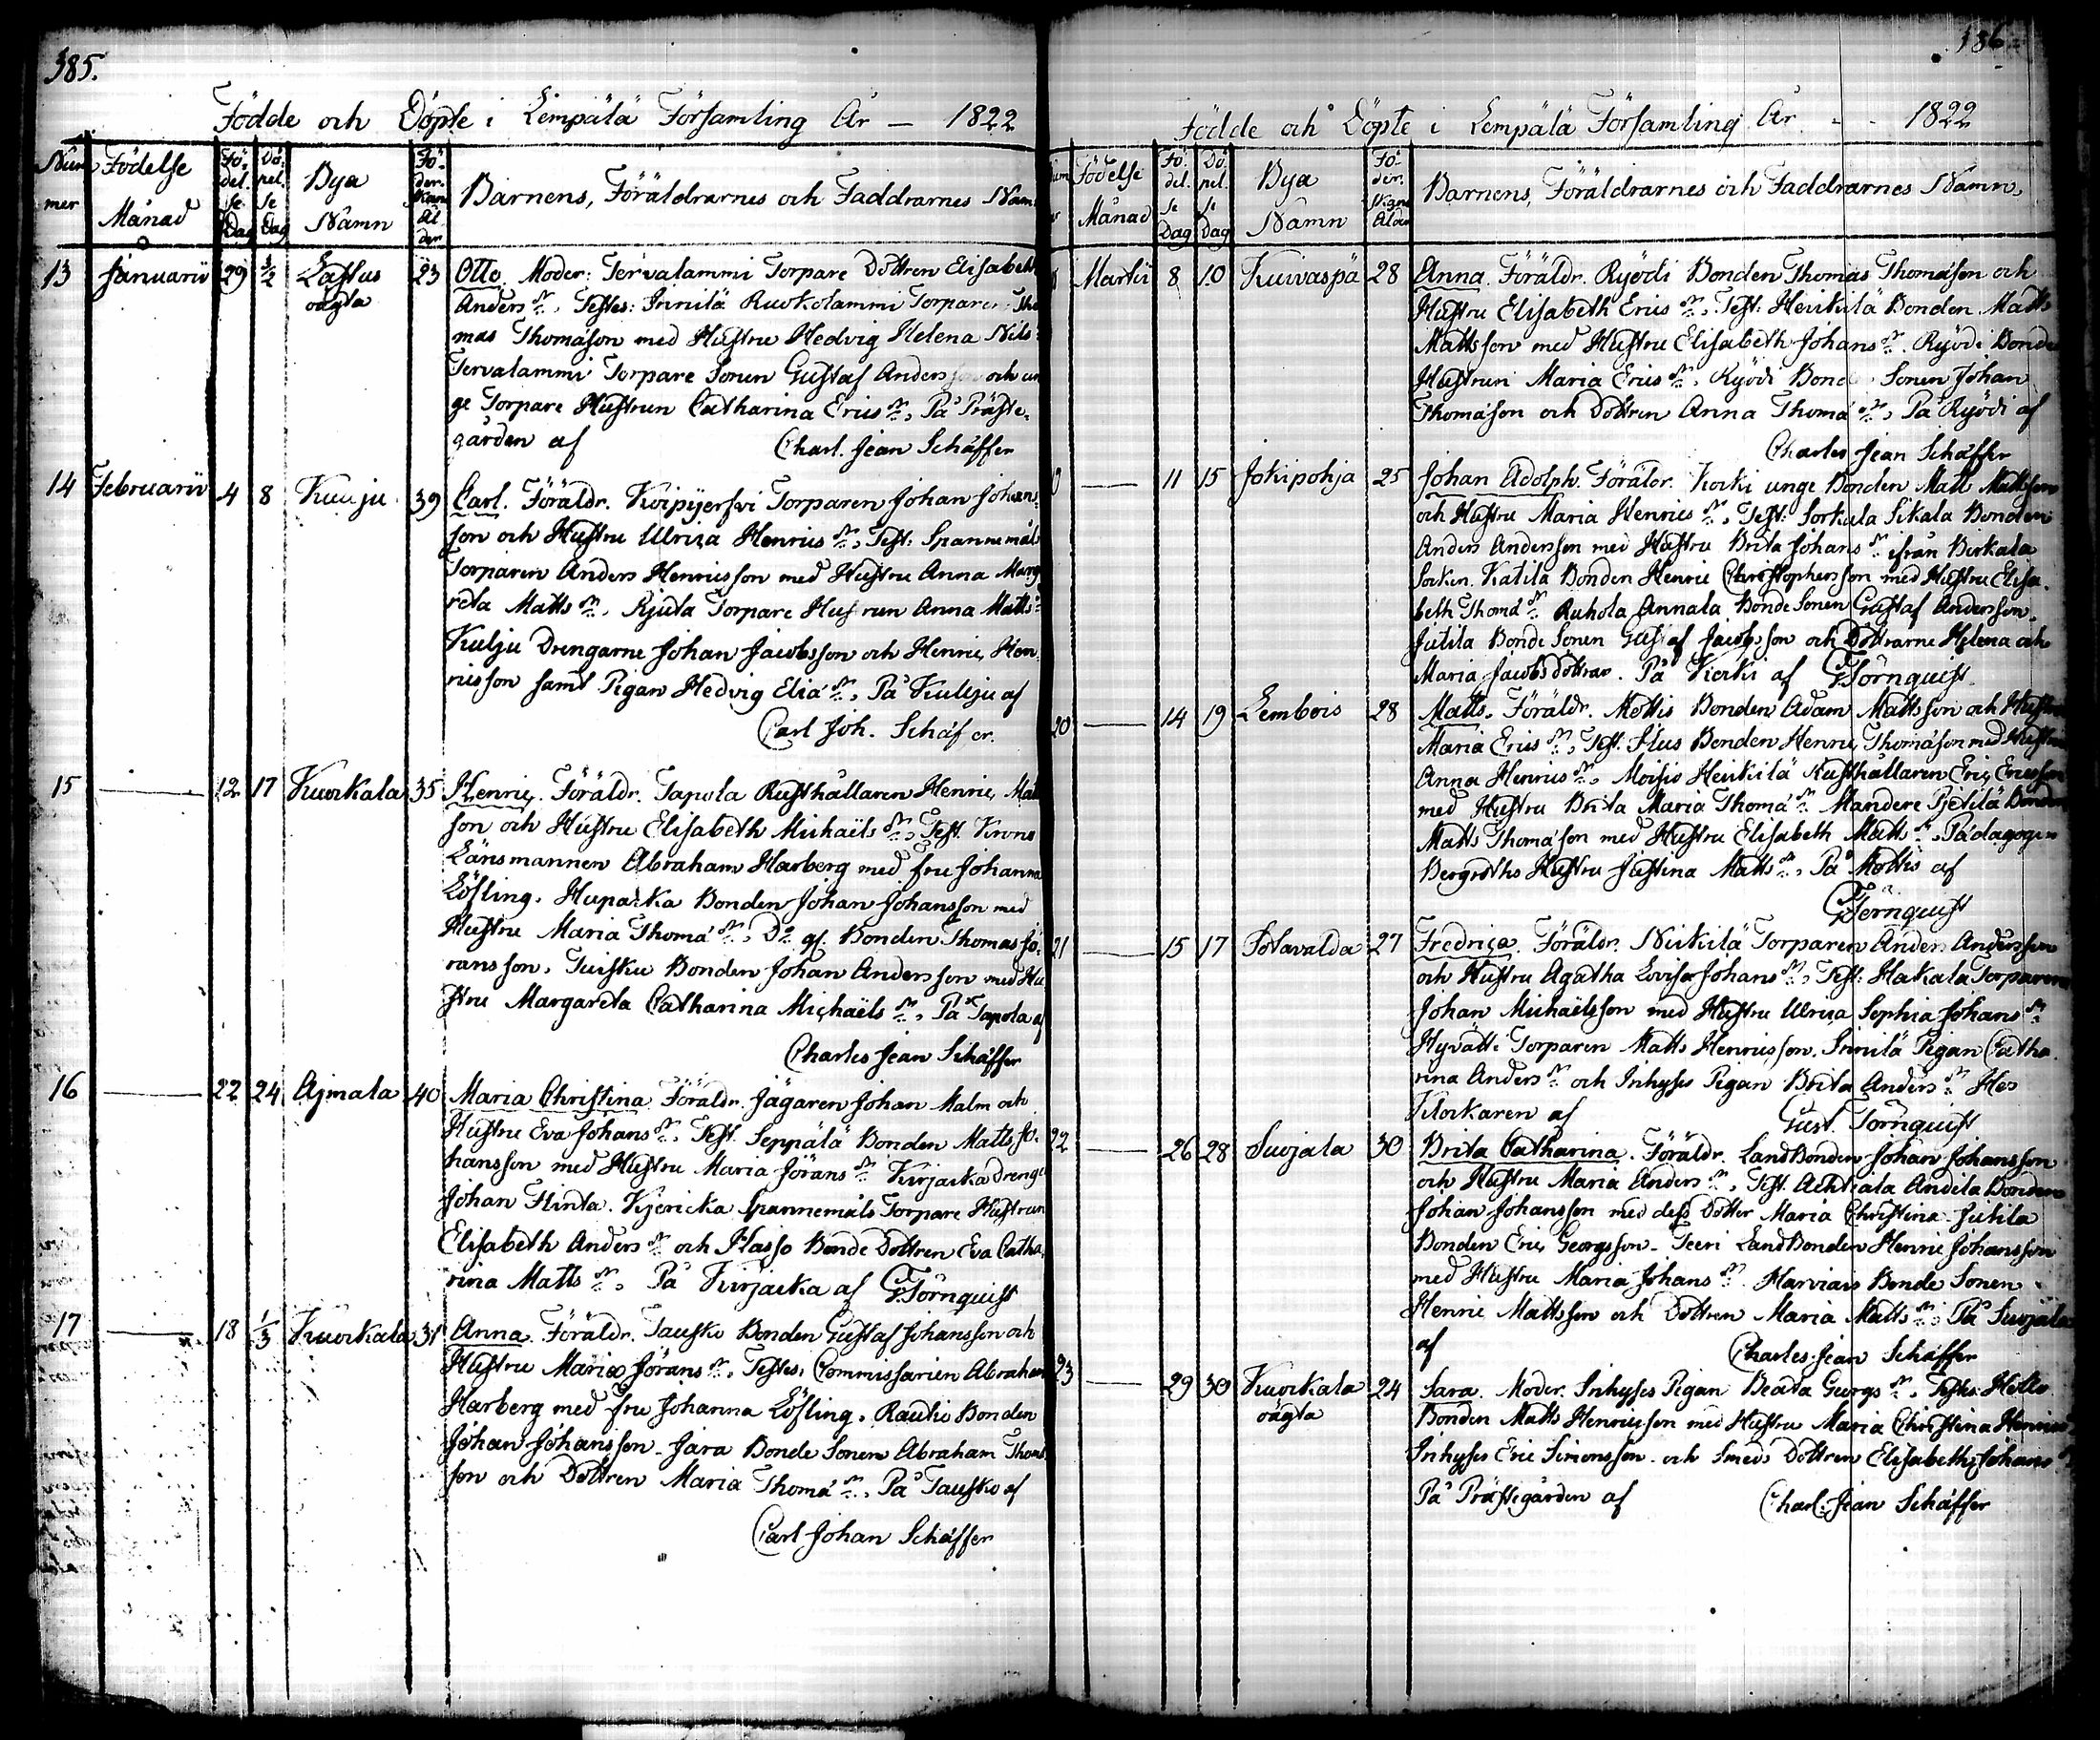 385.
Födde och Döpte i Lempälä Församling År — 1822
Num mer
Födelse Månad
Fö- del. se Dag
Dö- pel. se Dag
Bya Namn
Fö- der- skans Ål der
Barnens, Föräldrarnes och Faddrarnes Namn
13 Januarii 29 1/2 Lastus oägta 23 Otto. Moder: Tervalammi Torpare Dottren Elisabeth
Anders dr. Testes: Innilä Ruokolammi Torparen Tho
mas Thomasson med Hustru Hedvig Helena Nils
Tervalammi Torpare Sonen Gustaf Andersson och un
ge Torpare Hustrun Catharina Erics dr. På Präste-
gården af Charl. Jean Schäffer
14 Februarii 4 8 Kuulju 39 Carl. Föräldr. Torparen Johan Johans
son och Hustru Ulrica Henrics dr. Test: Spannemåls
Torparen Anders Henricsson med Hustru Anna Marga
reta Matts dr. Torpare Hustrun Anna Matts
Kulju Drengarne Johan Jacobsson och Henric Hen
ricsson samt Pigan Hedvig Elia dr. På Kulju af
Carl Joh. Schäffer.
15 — 12 17 Kuokala 35 Henric. Föräldr. Tapola Rusthållaren Henric Mats
son och Hustru Elisabeth Michaëls dr. Test. Krono
Länsmannen Abraham Harberg med fru Johanna
Löfling. Bonden Johan Johansson med
Hustru Maria Thoma dr. Do gl. Bonden Thomas Jö
ransson. Tuisku Bonden Johan Andersson med Hu
stru Margareta Catharina Michaëls dr. På Tapola af
Charles Jean Schäffer
16 — 22 24 Ajmala 40 Maria Christina. Föräldr. Jägaren Johan Malm och
Hustru Eva Johans dr. Test. Seppälä Bonden Matts Jo-
hansson med Hustru Maria Jörans dr. Kurjacka drenge
Johan Flinta. Spannemåls Torpare Hustrun
Elisabeth Anders dr och Hasso Bonde Dottren Eva Catha-
rina Matts dr. På Kurjacka af G. Törnquist
17 — 18 1/3 Kuokala 31 Anna. Föräldr. Tausko Bonden Gustaf Johansson och
Hustru Maria Jörans dr. Testes. Commissarien Abraham
Harberg med fru Johanna Löfling. Rautio Bonden
Johan Johansson. Jara Bonde Sonen Abraham Thomas
son och Dottren Maria Thoma dr. På Tausko af
Carl Johan Schäffer
386.
Födde och Döpte i Lempälä Församling År - - 1822
Födelse Månad
Fö- del. se Dag
Dö- pel. se Dag
Bya Namn
Fö- der- skans Ålder
Barnens, Föräldrarnes och Faddrarnes Namn.
Martii 8 10 Kuivaspä 28 Anna. Föräldr. Ryödi Bonden Thomas Thomason och
Hustru Elisabeth Erics dr. Test: Heikkilä Bonden Matts
Mattsson med Hustru Elisabeth Johans dr. Ryödi Bonde
Hustrun Maria Erics dr. Ryödi Bonde Sonen Johan
Thomason och Dottren Anna Thoma dr. På Ryödi af
Charles Jean Schäffer
— 11 15 Jokipohja 25 Johan Adolph. Föräldr. Korki unge Bonden Matt Mattsson
och Hustru Maria Henrics dr. Test: Sorkula Sikala Bonden
Anders Andersson med Hustru Brita Johans dr ifrån Birkala
Socken. Katila Bonden Henric Christophersson med Hustru Elisa-
beth Thoma dr. Ruhola Annala Bonde Sonen Gustaf Andersson.
Jutila Bonde Sonen Gustaf Jacobsson och Döttrarne Helena och
Maria Jacobs döttrar. På Korki af G. Törnquist
20 — 14 19 Lembois 28 Matts. Föräldr. Mottis Bonden Adam Mattsson och Hustru
Maria Erics dr. Test. Bonden Henric Thomason med Hustru
Anna Henrics dr. Moisio Heikkilä Rusthållaren Eric Ericsson
med Hustru Brita Maria Thoma dr. Mandere Pjetilä Bonden
Matts Thomason med Hustru Elisabeth Matts dr. Pädagogen
Bergroths Hustru Justina Matts dr. På Mottis af
G. Törnquist
21 — 15 17 Sotavalda 27 Fredrica. Föräldr. Nikkilä Torparen Anders Andersson
och Hustru Agatha Lovisa Johans dr. Test: Hakala Torparen
Johan Michaelsson med Hustru Ulrica Sophia Johans dr
Hyvätti Torparen Matts Henricsson. Innilä Pigan Catha-
rina Anders dr och Inhyses Pigan Brita Anders dr Hos
Klockaren af Gust. Törnquist
22 — 26 28 Suojala 30 Brita Catharina. Föräldr. LandBonden Johan Johansson
och Hustru Maria Anders dr. Test. Achtiala Andila Bonden
Johan Johansson med dess Dotter Maria Christina. Jutila
Bonden Eric Georgsson. Teeri LandBonden Henric Johansson
med Hustru Maria Johans dr. Harvians Bonde Sonen
Henric Mattsson och Dottren Maria Matts dr. På Suojala
af Charles Jean Schäffer
23 — 29 30 Kuokala oägta 24 Sara. Moder. Inhyses Pigan Beata Georgs dr. Testes: Hollo
Bonden Matts Henricsson med Hustru Maria Christina Henrics
Inhyses Eric Simonsson och Smeds Dottren Elisabeth Johans dr
På Prästegården af Charl. Jean Schäffer